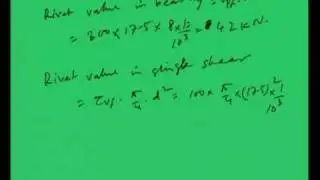 Rivet value in bearing =
= 300 x 17.5 x 8 x 1/10³ = 42 KN.
Rivet value in single shear
= τvf . π/4 . d² = 100 x π/4 x (17.5)² x 1/10³